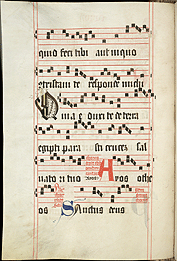 quid feci tibi aut in quo
ctristavi te responde michi
Quia eduxi te de terra
egypti parasti crucem sal
vatori tuo Ayos othe
os Sanctus deus